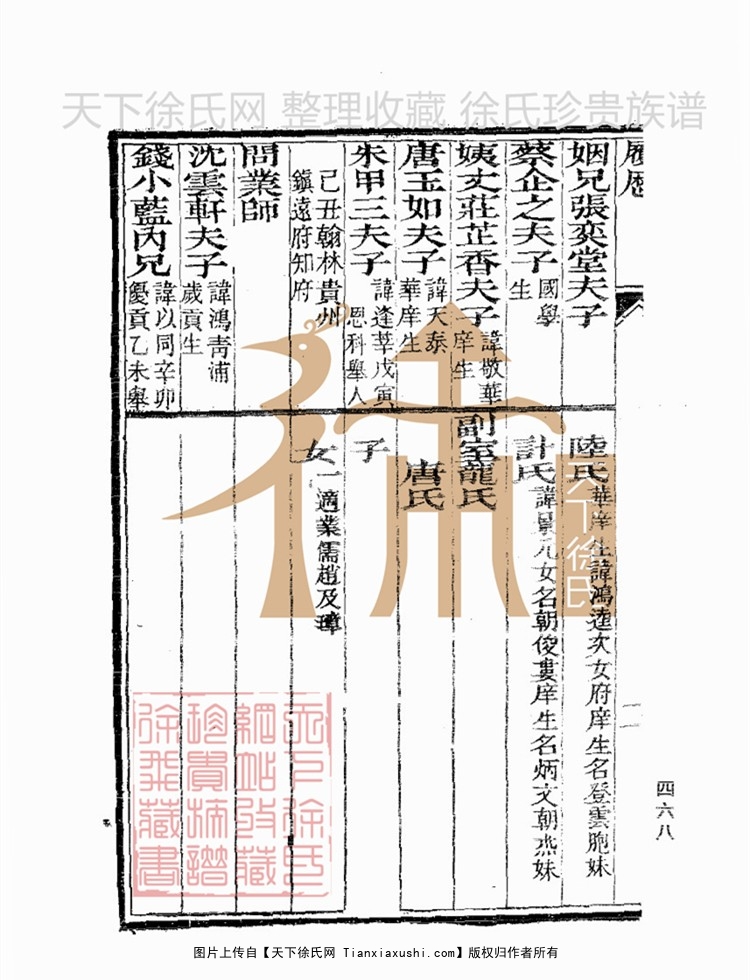 天下徐氏网 整理收藏 徐氏珍贵族谱
履歷
姻兄張奕堂夫子
蔡企之夫子 國學
生
姨丈莊芷香夫子 諱敬華
庠生
唐玉如夫子 諱天泰
華庠生
朱甲三夫子 諱逢莘戊寅
恩科舉人
己丑翰林貴州
鎮遠府知府
問業師
沈雲軒夫子 諱鴻青浦
歲貢生
錢小藍內兄 諱以同辛卯
優貢乙未舉
陸氏 華庠生諱鴻逵次女府庠生名登雲胞妹
計氏 諱景元女名朝俊婁庠生名炳文朝杰妹
副室龍氏
唐氏
子
女 一適業儒趙及璋
二
四六八
天下徐氏
天下徐氏
網站收藏
珍貴族譜
徐飛藏書
图片上传自【天下徐氏网 Tianxiaxushi.com】版权归作者所有